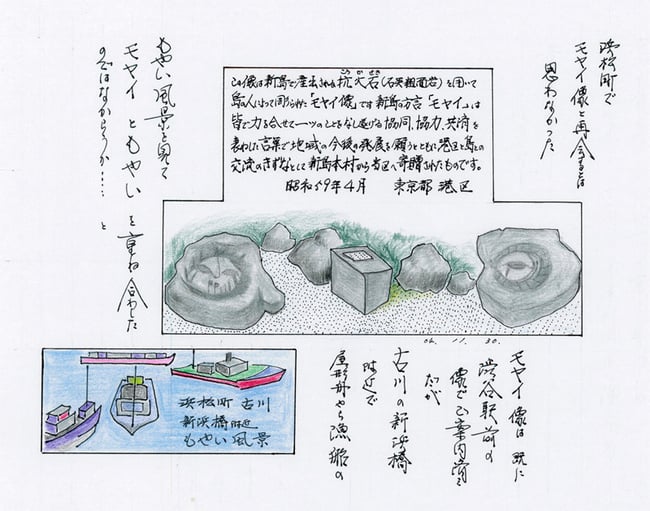 浜松町で
モヤイ像と再会するとは
思わなかった
この像は新島で産出される抗火石(石英粗面岩)を用いて
こうかせき
島人によって彫られた「モヤイ像」です 新島の方言「モヤイ」は
皆で力を合せて一ツのことをなし遂げる協同、協力、共済を
表わした言葉で地域の今後の発展を願うとともに港区と島との
交流のきずなとして新島本村から当区へ寄贈されたものです。
昭和59年4月 東京都 港区
06. 11. 30.
モヤイ像は 既に
渋谷駅前の
像でご案内済みだが
古川の新浜橋
附近で
屋形舟やら漁船の
もやい風景を見て
モヤイ ともやい を重ね合わした
のではなかろうか・・・・ と
浜松町 古川
新浜橋附近
もやい風景